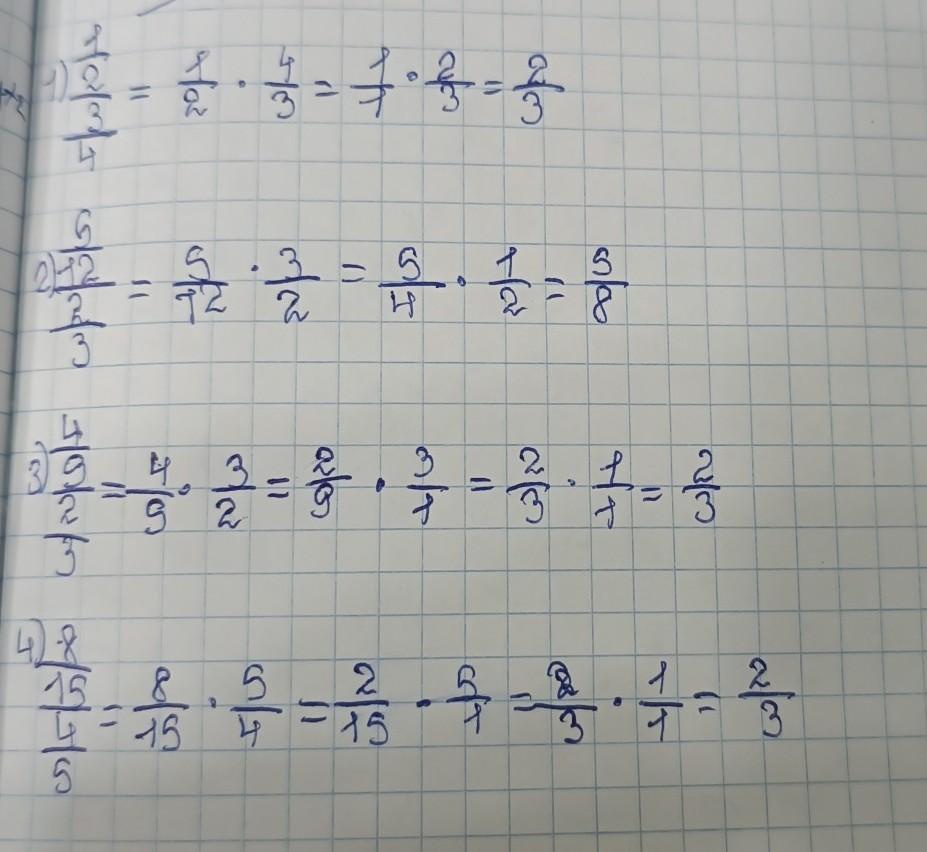 1) 1/2 / 3/4 = 1/2 · 4/3 = 1/1 · 2/3 = 2/3
2) 5/12 / 2/3 = 5/12 · 3/2 = 5/4 · 1/2 = 5/8
3) 4/9 / 2/3 = 4/9 · 3/2 = 2/9 · 3/1 = 2/3 · 1/1 = 2/3
4) 8/15 / 4/5 = 8/15 · 5/4 = 2/15 · 5/1 = 2/3 · 1/1 = 2/3